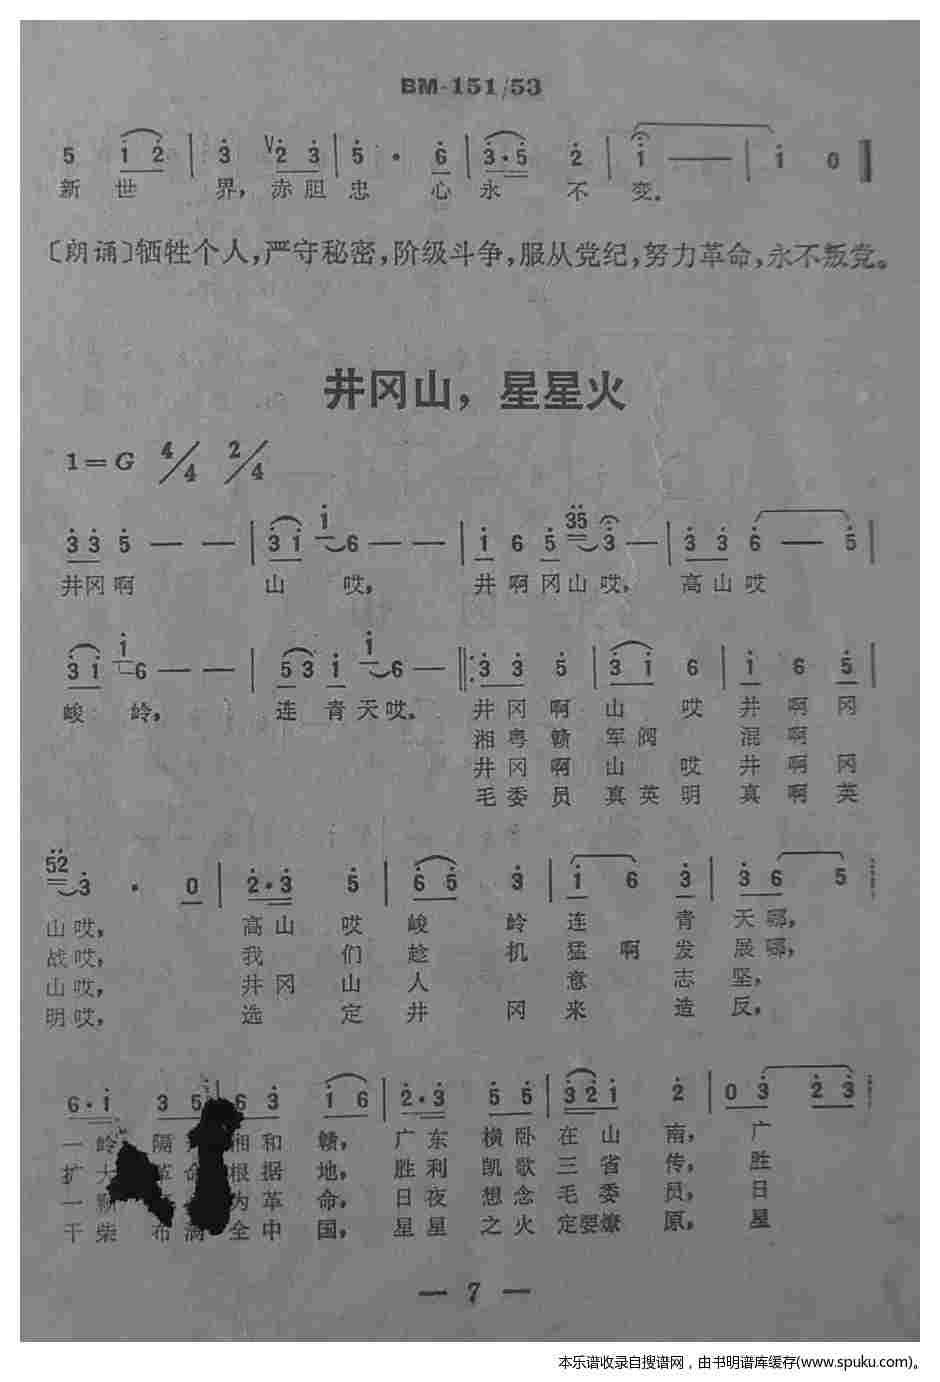 BM-151/53
5 1 2 | 3 2 3 | 5 · 6 | 3·5 2 | 1 — | 1 0
新 世 界，赤胆 忠 心 永 不 变。
〔朗诵〕牺牲个人，严守秘密，阶级斗争，服从党纪，努力革命，永不叛党。
井冈山，星星火
1=G 4/4 2/4
3 3 5 — — | 3 1 1 6 — — | 1 6 5 35 3 — | 3 3 6 — 5 |
井冈 啊 山 哎， 井 啊 冈 山 哎， 高 山 哎
3 1 1 6 — — | 5 3 1 1 6 — |: 3 3 5 | 3 1 6 | 1 6 5 |
峻 岭， 连 青 天 哎。 井 冈 啊 山 哎 井 啊 冈
湘 粤 赣 军 阀 混 啊
井 冈 啊 山 哎 井 啊 冈
毛 委 员 真 英 明 真 啊 英
52 3 · 0 | 2·3 5 | 6 5 3 | 1 6 3 | 3 6 5
山 哎， 高 山 哎 峻 岭 连 青 天 哪，
战 哎， 我 们 趁 机 猛 啊 发 展 哪，
山 哎， 井 冈 山 人 意 志 坚，
明 哎， 选 定 井 冈 来 造 反，
6·1 3 5 | 6 3 1 6 | 2·3 5 5 | 3 2 1 2 | 0 3 2 3
一 岭 隔 湘 和 赣， 广 东 横 卧 在 山 南， 广
扩 大 革 命 根 据 地， 胜 利 凯 歌 三 省 传， 胜
一 颗 为 革 命， 日 夜 想 念 毛 委 员， 日
干 柴 布 满 全 中 国， 星 星 之 火 定 要 燎 原， 星
— 7 —
本乐谱收录自搜谱网，由书明谱库缓存(www.spuku.com)。